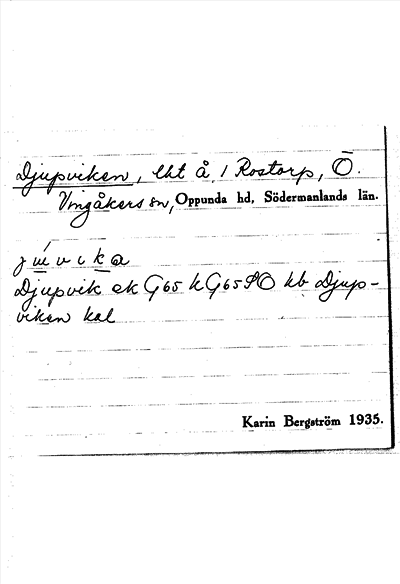 Djupviken, lht å, / Rostorp, Ö.
Vingåkers sn, Oppunda hd, Södermanlands län.
Djupvik ek G65 k G65 PO kb Djup-
viken kal
Karin Bergström 1935.